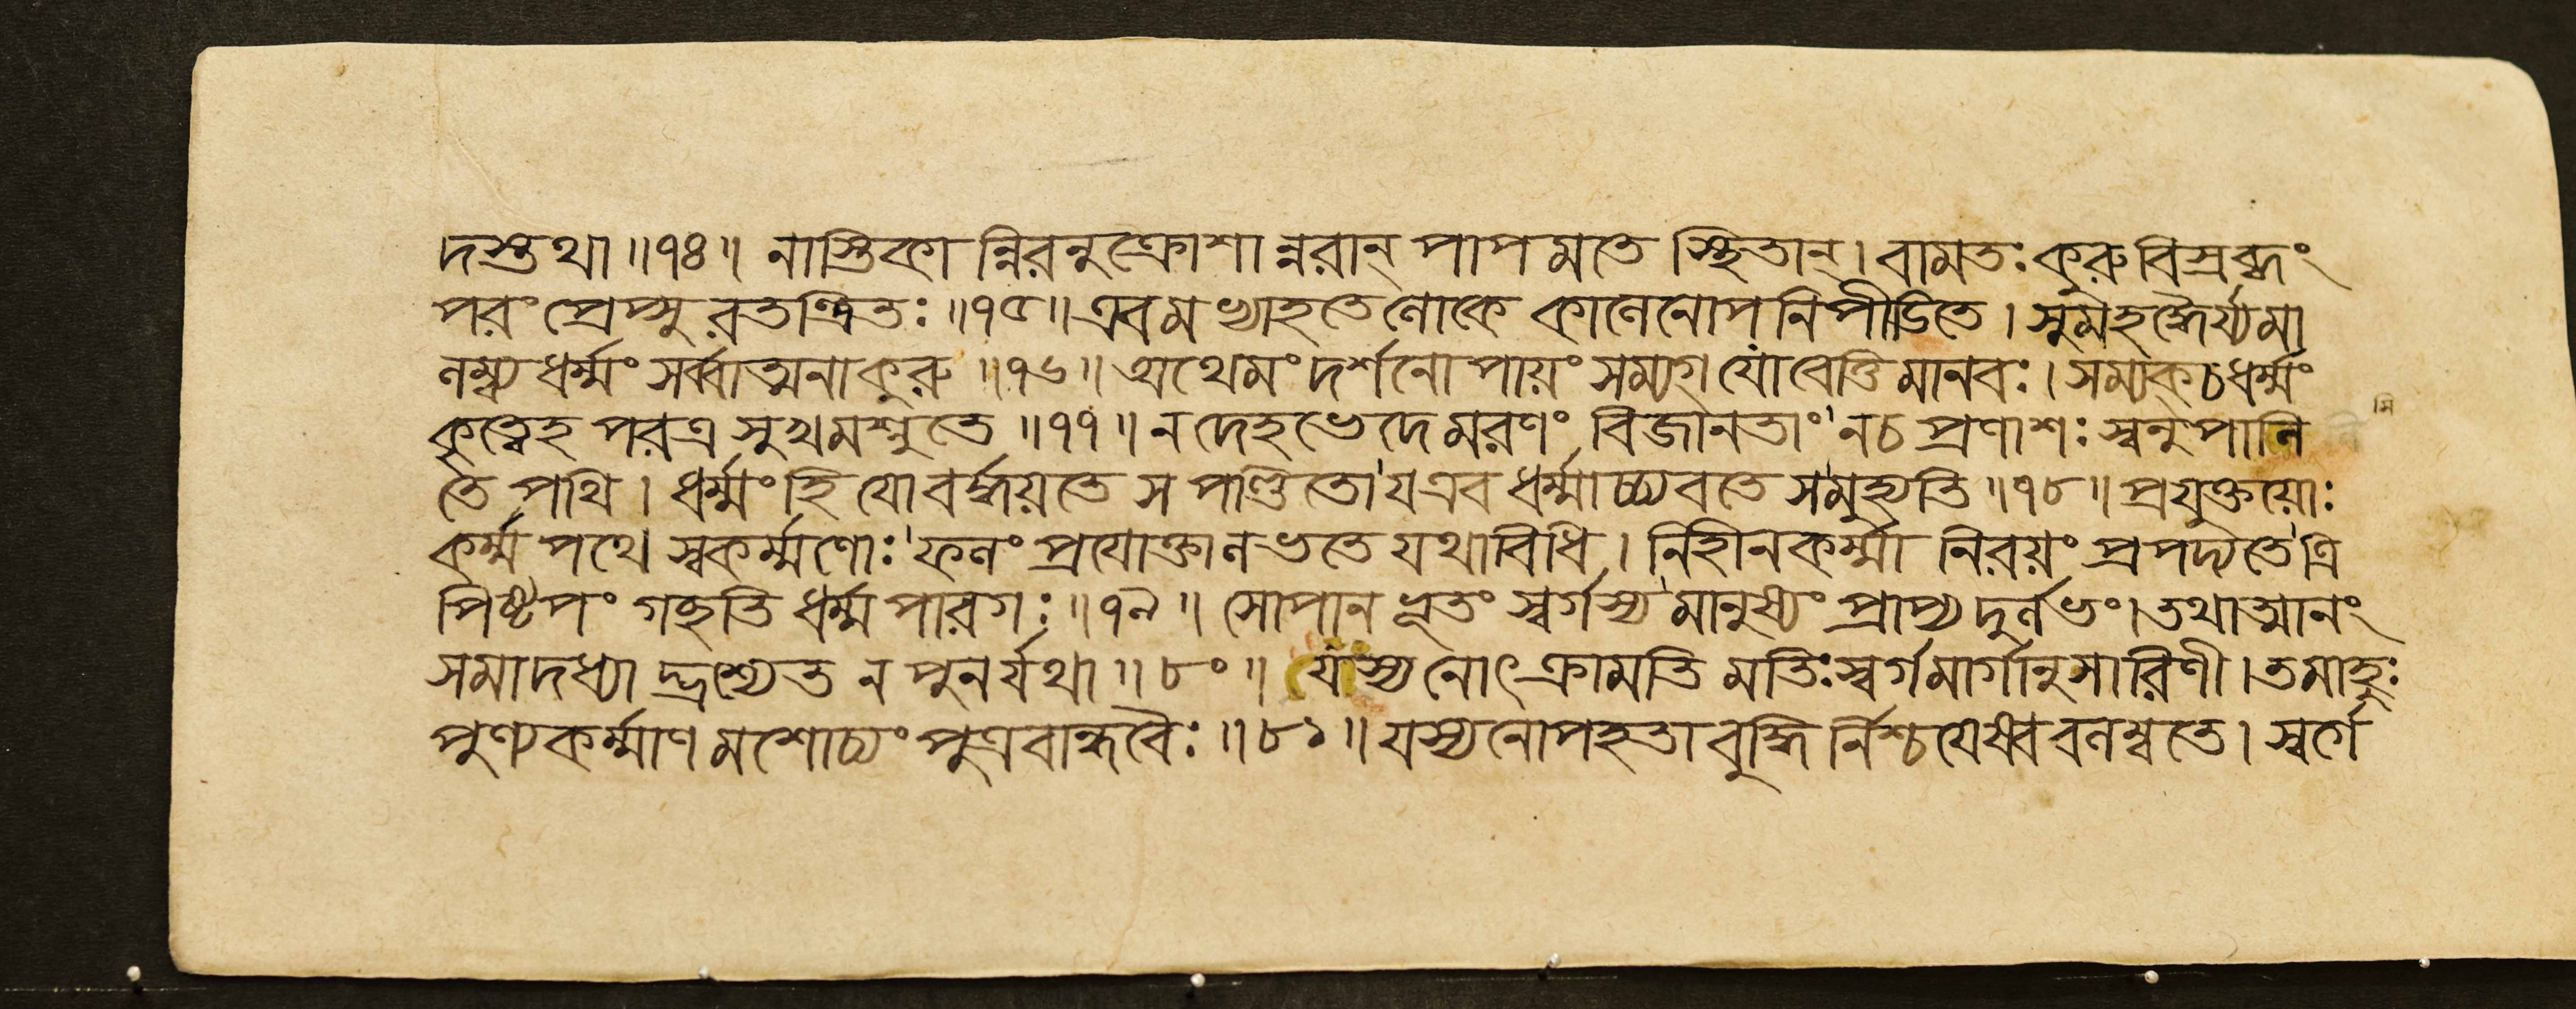 দস্তথা॥৭৪॥ নাস্তিকান্নিরনুক্রোশান্নরান্ পাপমতে স্থিতান্। বামতঃ কুরু বিস্রব্ধং
পরং প্রেপ্সুরতন্দ্রিতঃ॥৭৫॥ এবমভ্যাহতে লোকে কালেনোপনিপীড়িতে। সুমহদ্ধৈর্য্যমা
লম্ব্য ধর্ম্মং সর্ব্বাত্মনা কুরু॥৭৬॥ অথেমং দর্শনোপায়ং সম্যগ্ যো বেত্তি মানবঃ। সম্যক্ চ ধর্ম্মং
কৃত্বেহ পরত্র সুখমশ্নুতে॥৭৭॥ ন দেহভেদে মরণং বিজানতাং ন চ প্রণাশঃ স্বনুপালি
তে পথি। ধর্ম্মং হি যো বর্দ্ধয়তে স পণ্ডিতো য এব ধর্ম্মাচ্চ্যবতে স মুহ্যতি॥৭৮॥ প্রযুক্তয়োঃ
কর্ম্মপথে স্বকর্ম্মণোঃ ফলং প্রযোক্তা লভতে যথাবিধি। নিহীনকর্ম্মা নিরয়ং প্রপদ্যতে ত্রি
পিষ্টপং গচ্ছতি ধর্ম্মপারগঃ॥৭৯॥ সোপানভূতং স্বর্গস্য মানুষ্যং প্রাপ্য দুর্লভং। তথাত্মানং
সমাদধ্যাদ্ভ্রশ্যেত ন পুনর্যথা॥৮০॥ যস্য নোৎক্রামতি মতিঃ স্বর্গমার্গানুসারিণী। তমাহুঃ
পুণ্যকর্ম্মাণমশোচ্যং পুত্রবান্ধবৈঃ॥৮১॥ যস্য নোপহতা বুদ্ধির্নিশ্চয়েষ্ববলম্বতে। স্বর্গে